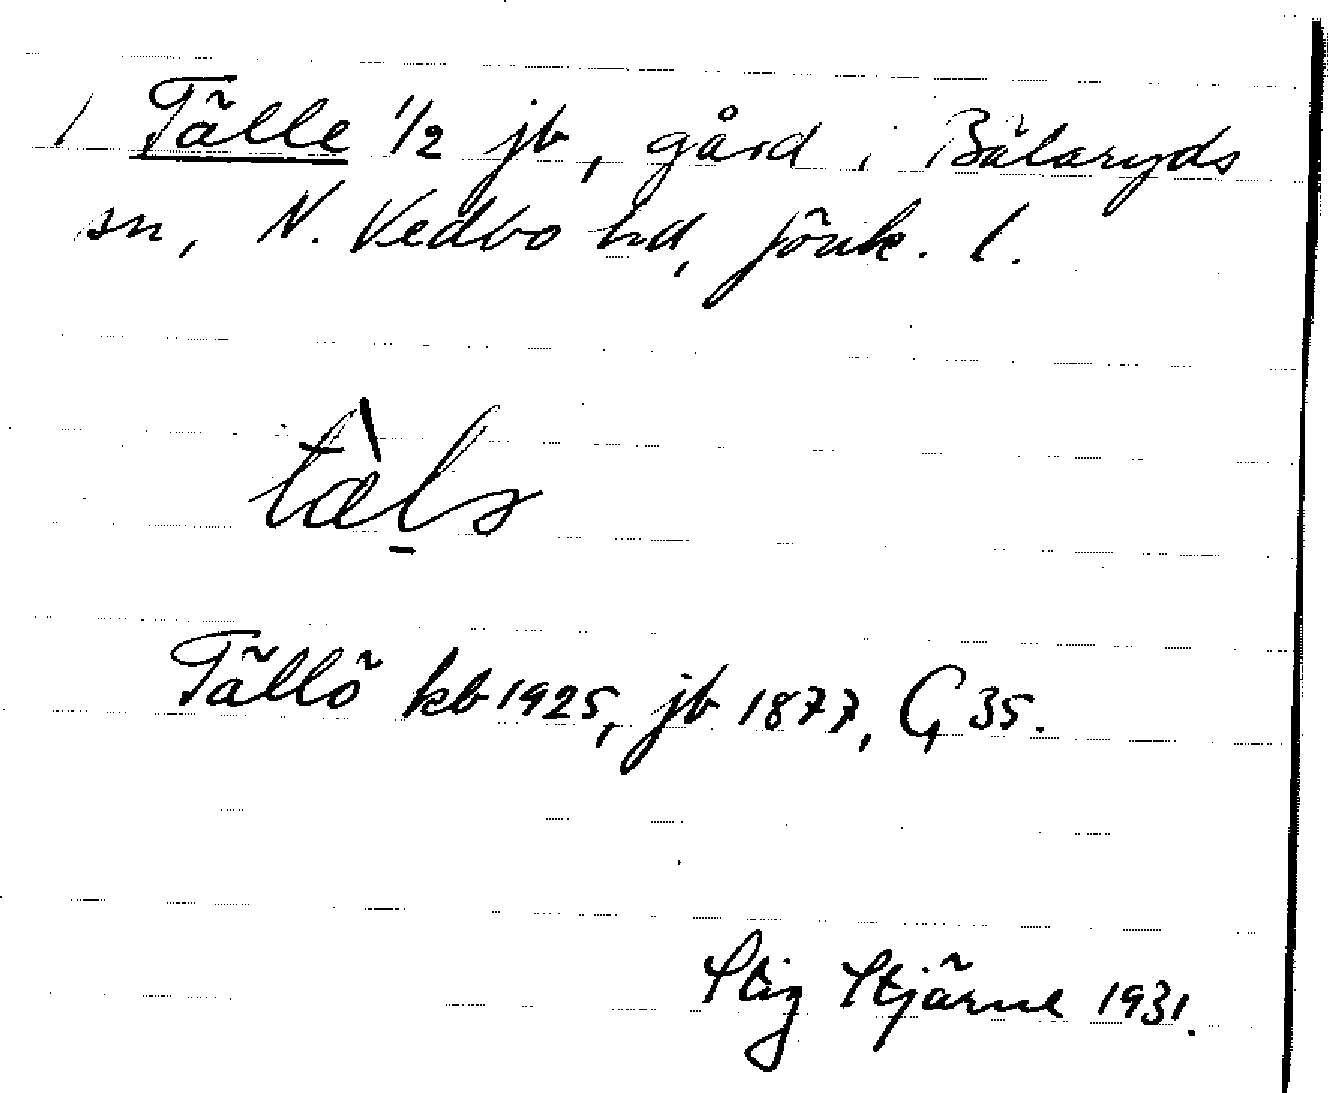 / Tälle 1/2 jb, gård i Bälaryds
sn, N. Vedbo hd, Jönk. l.
tæ̀l̠ə
Tällö kb 1925, jb 1877, G 35.
Stig Stjärne 1931.